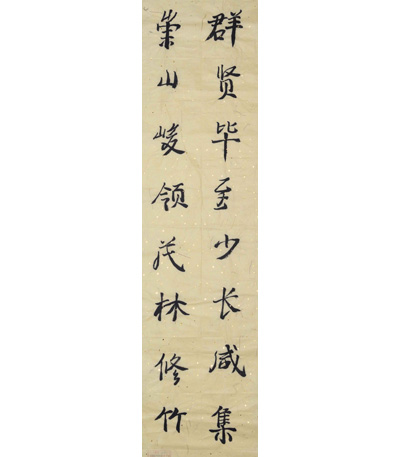 群贤毕至少长咸集
崇山峻领茂林修竹